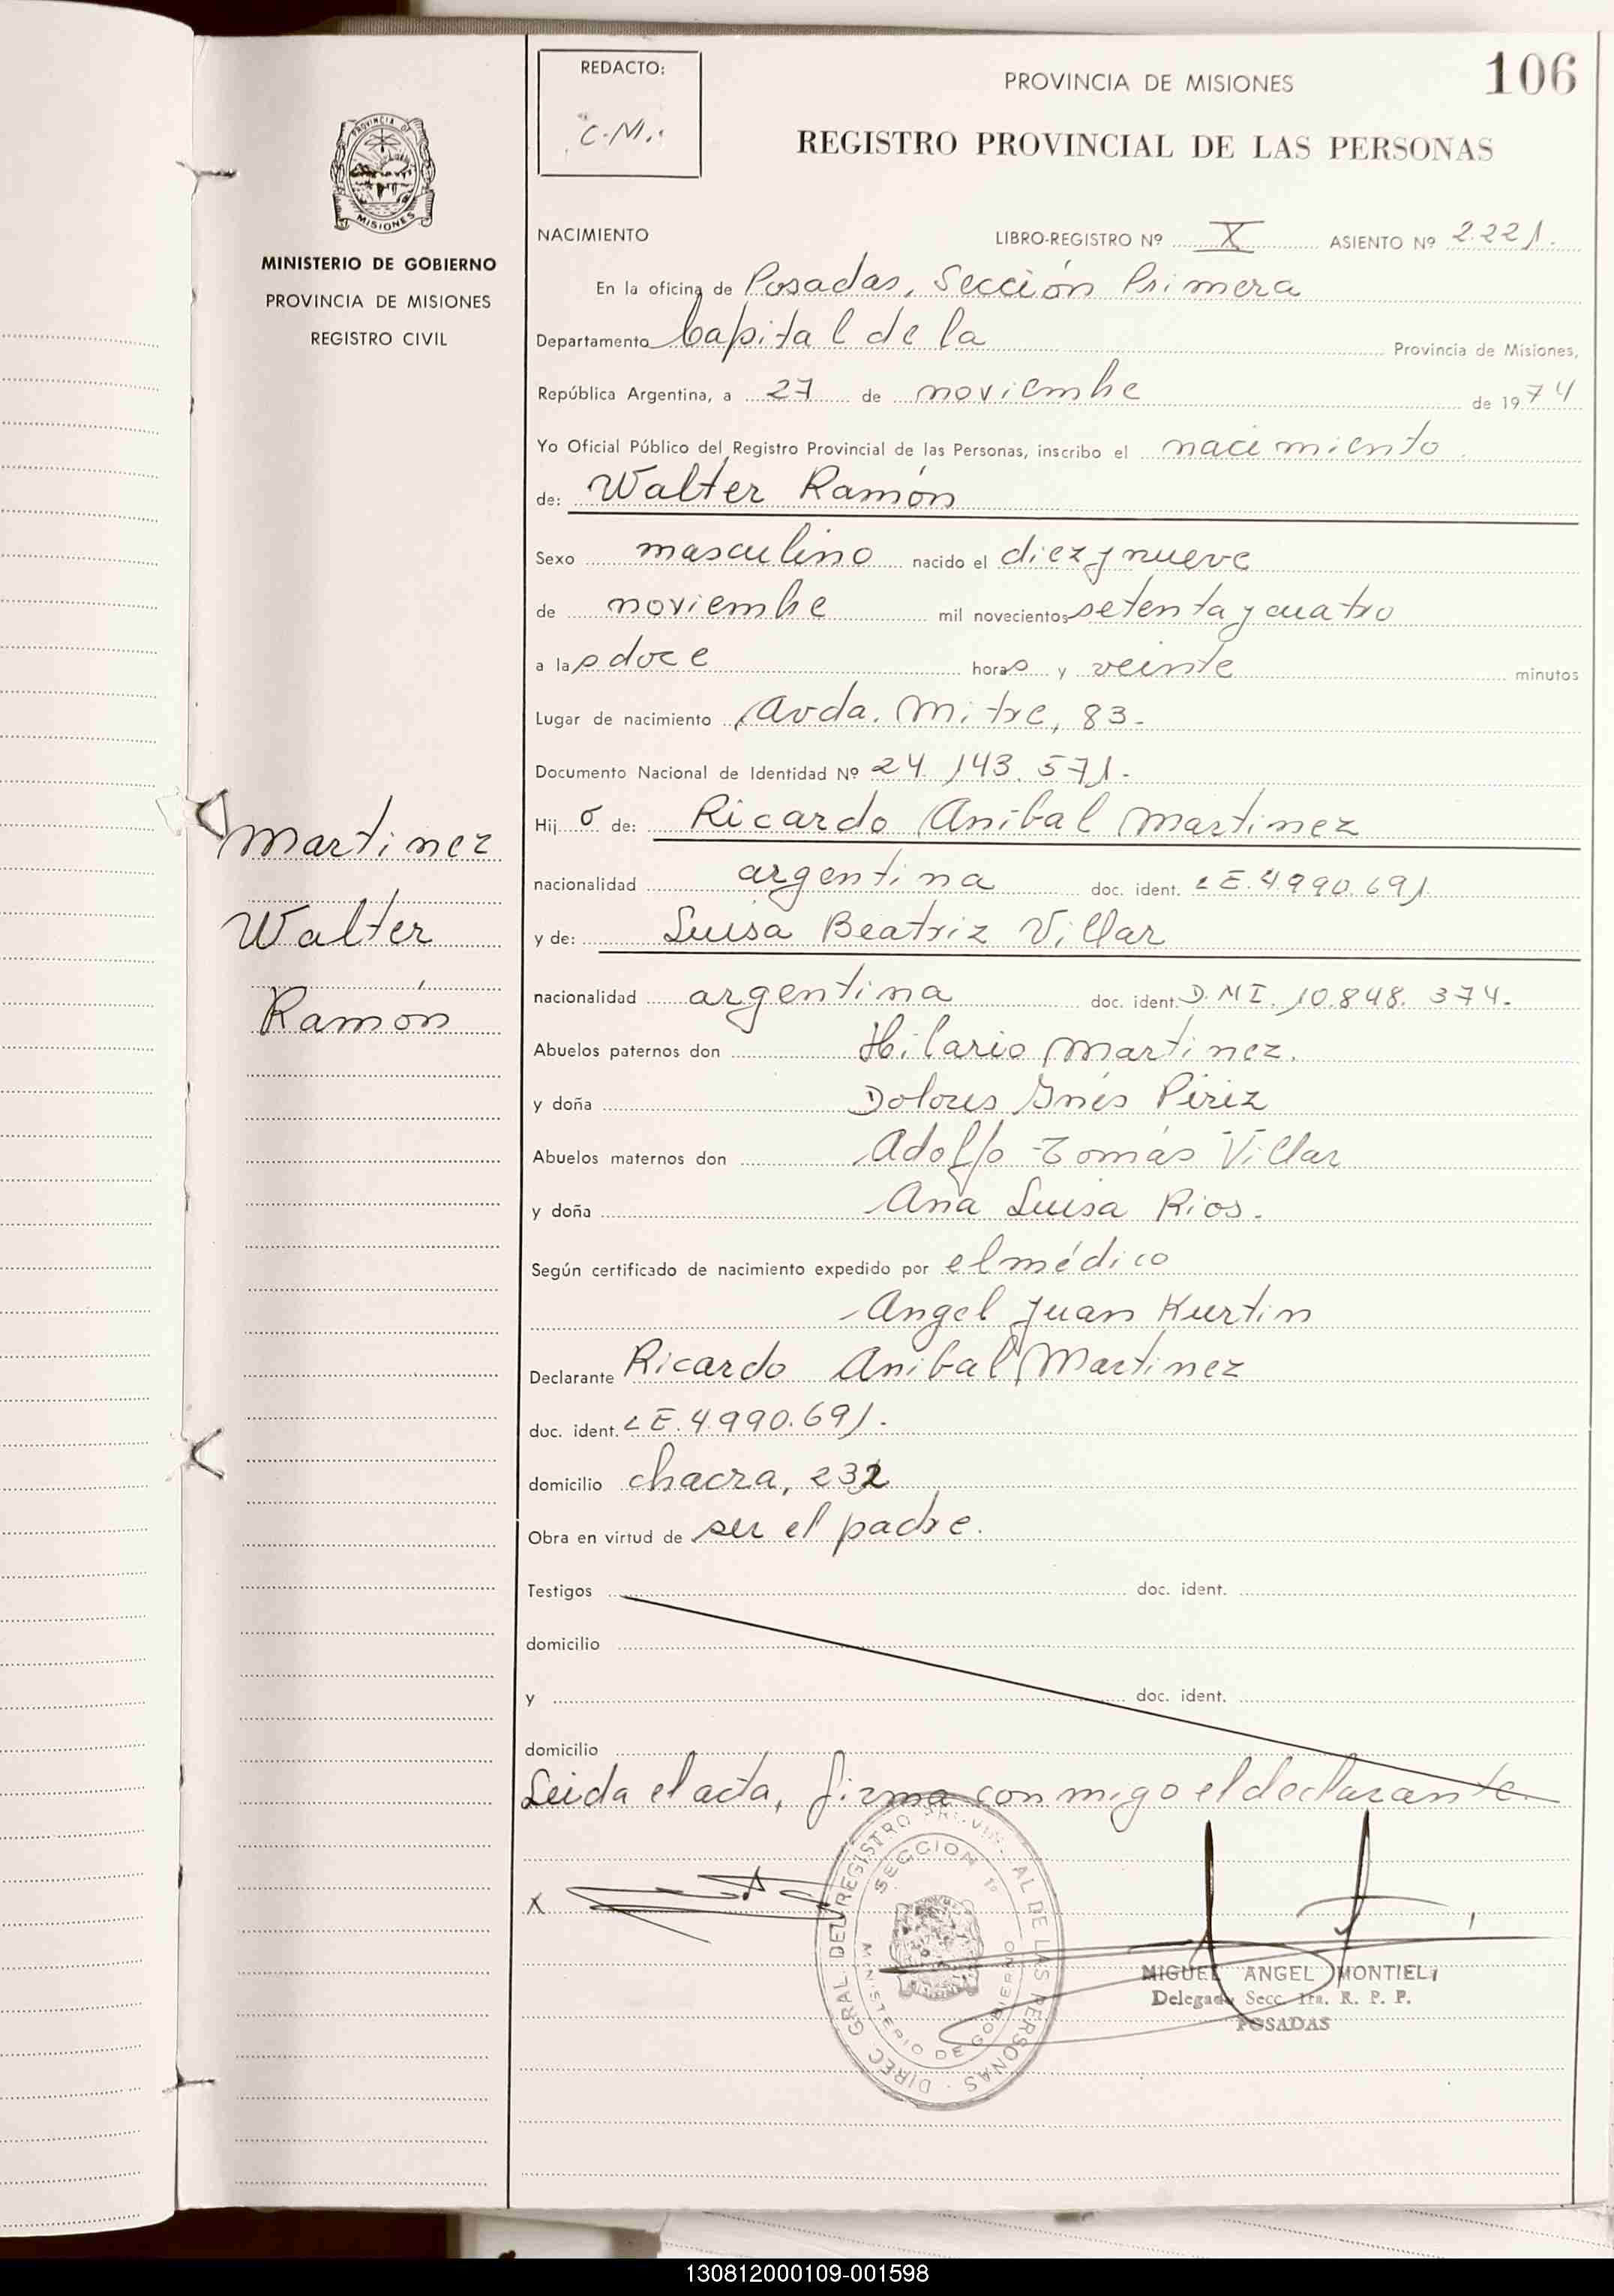 REDACTO:
C.M.
PROVINCIA DE MISIONES
106
REGISTRO PROVINCIAL DE LAS PERSONAS
PROVINCIA DE
MISIONES
MINISTERIO DE GOBIERNO
PROVINCIA DE MISIONES
REGISTRO CIVIL
NACIMIENTO LIBRO-REGISTRO Nº X ASIENTO Nº 2.221.
En la oficina de Posadas, Sección Primera
Departamento Capital de la Provincia de Misiones,
República Argentina, a 27 de noviembre de 1974
Yo Oficial Público del Registro Provincial de las Personas, inscribo el nacimiento
de: Walter Ramón
Sexo masculino nacido el diez y nueve
de noviembre mil novecientos setenta y cuatro
a las doce horas y veinte minutos
Lugar de nacimiento Avda. Mitre, 83.-
Documento Nacional de Identidad Nº 24.143.571.-
Hijo de: Ricardo Anibal Martinez
nacionalidad argentina doc. ident. LE.4.990.691.
y de: Luisa Beatriz Villar
nacionalidad argentina doc. ident. D.N.I. 10.848.374.-
Abuelos paternos don Hilario Martinez.
y doña Dolores Inés Píriz
Abuelos maternos don Adolfo Tomás Villar
y doña Ana Luisa Rios.-
Según certificado de nacimiento expedido por el médico
Angel Juan Kurtin
Declarante Ricardo Anibal Martinez
doc. ident. LE.4.990.691.-
domicilio chacra, 232
Obra en virtud de ser el padre.
Testigos doc. ident.
domicilio
y doc. ident.
domicilio
Leida el acta, firma conmigo el declarante
Martinez
Walter
Ramón
X
DIREC. GRAL. DEL REGISTRO PROVINCIAL DE LAS PERSONAS
SECCION 1º
MINISTERIO DE GOBIERNO
MIGUEL ANGEL MONTIEL
Delegado Secc. 1ra. R. P. P.
POSADAS
130812000109-001598